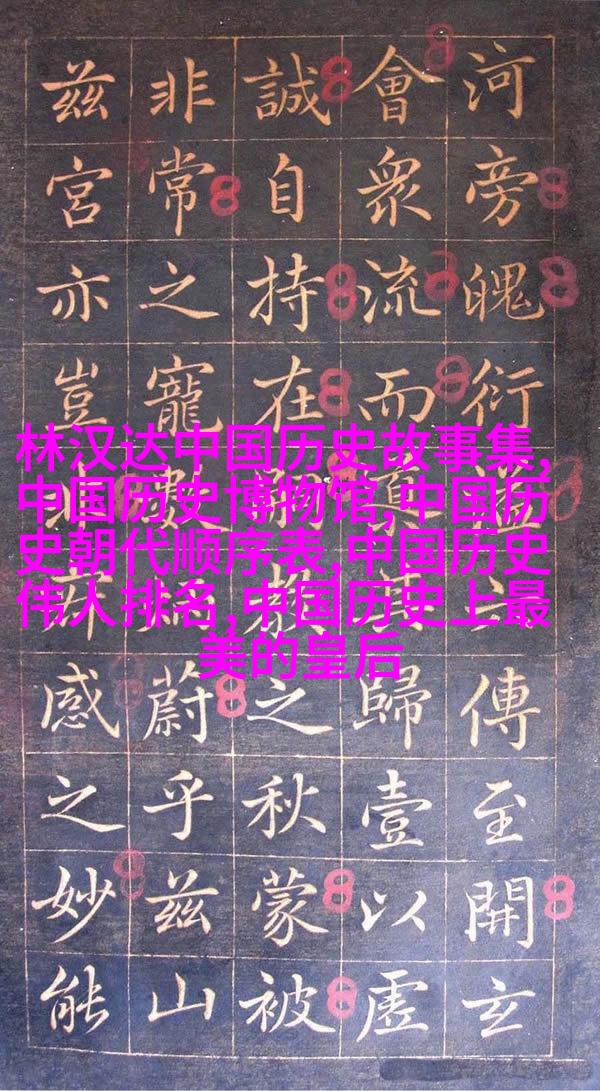 林汉达中国历史故事集,
中国历史博物馆,中国历
史朝代顺序表,中国历史
伟人排名,中国历史上最
美的皇后
河旁魄衍傳至開玄
會衆流而歸壹以虛
誠自持在之秋蒙被
非常之寵蔚乎兹山
兹宮亦豈感之妙能